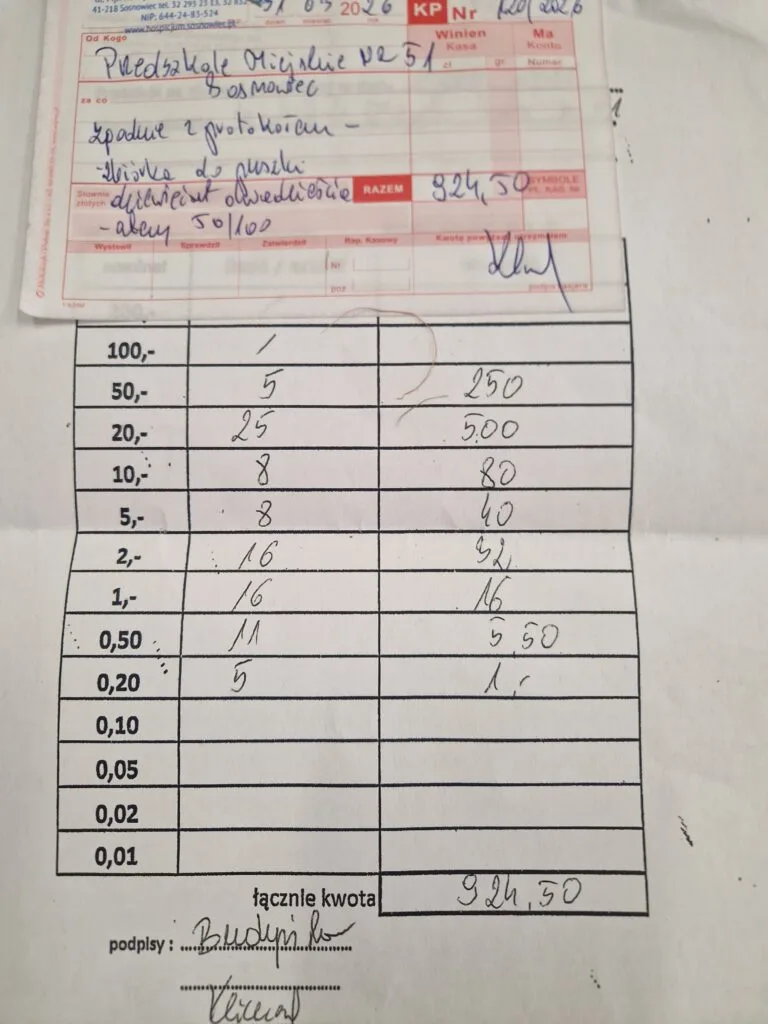 41-218 Sosnowiec tel. 32 293 23 13, 32 832
NIP: 644-24-83-524
www.hospicjum.sosnowiec.pl
31 03 2026
dzień miesiąc rok
KP Nr 120/2026
Od Kogo
Winien Kasa
Ma Konto
Przedszkole Miejskie NR 51
zł gr Numer
Sosnowiec
za co
zgodnie z protokołem -
zbiórka do puszki
Słownie złotych
dziewięćset dwadzieścia
RAZEM
924,50
SYMBOLE PL. KAS. Nr
- cztery 50/100
Wystawił Sprawdził Zatwierdził Rap. Kasowy Kwotę powyższą otrzymałem
Nr
poz
podpis kasjera
100,- /
50,- 5 250
20,- 25 500
10,- 8 80
5,- 8 40
2,- 16 32
1,- 16 16
0,50 11 5,50
0,20 5 1,-
0,10
0,05
0,02
0,01
łącznie kwota 924,50
podpisy :